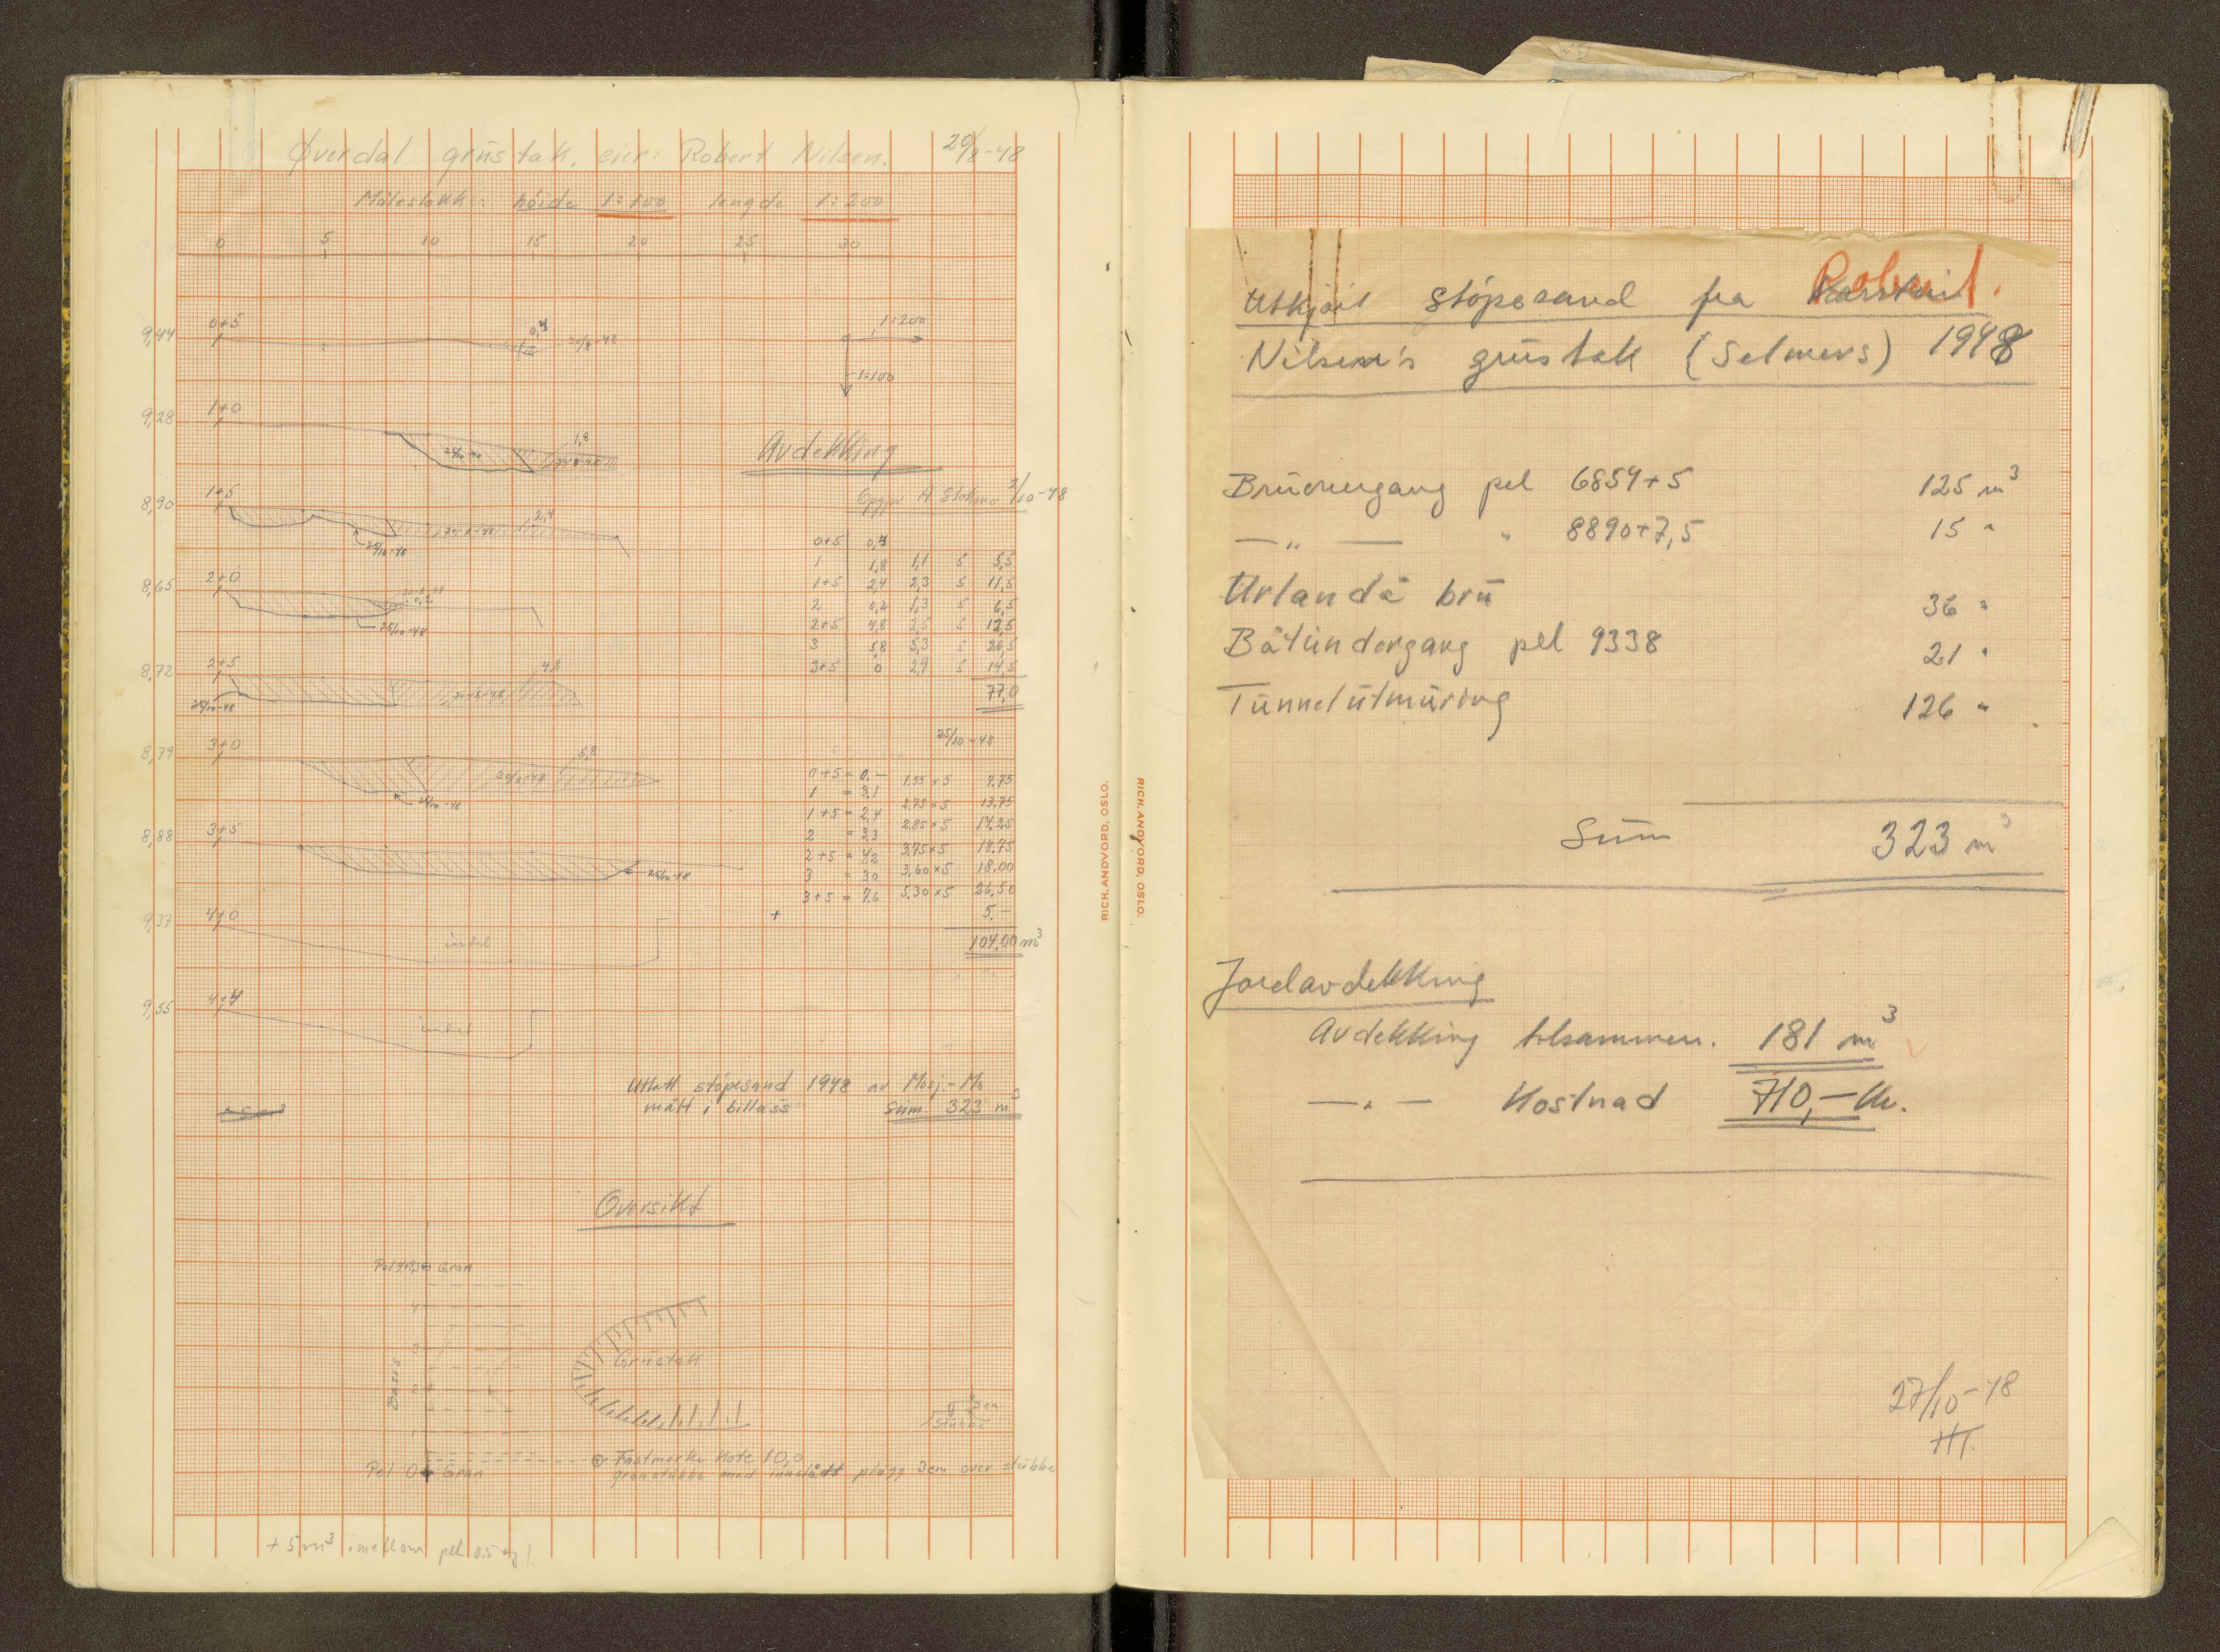 Øverdal grustak, eier: Robert Nilsen. 20/8-48
Målestokk: høide 1:100 lengde 1:200
0 5 10 15 20 25 30
9,44 0+5 0,4 20/8-48
1:200
1:100
9,28 1+0 1,8
25/10-48 20-8-48
8,90 1+5 2,4
20-8-48
25/10-48
8,65 2+0 20-8-48
0,2
25/10-48
8,72 2+5 4,8
20-8-48
25/10-48
8,79 3+0 5,8
20/8-48
25/10-48
8,88 3+5
25/10-48
9,37 4+0
9,55 4+4
Avdekking
2/10-48
0+5 0,4
1 1,8 1,1 5 5,5
1+5 2,4 2,3 5 11,5
2 0,2 1,3 5 6,5
2+5 4,8 2,5 5 12,5
3 5,8 5,3 5 26,5
3+5 0 2,9 5 14,5
77,0
25/10-48
0+5 = 0.— 1.55 x 5 7.75
1 = 3,1 2.75 x 5 13.75
1+5 = 2,4 2.85 x 5 14.25
2 = 3,3 3.75 x 5 18.75
2+5 = 4,2 3,60 x 5 18.00
3 = 3,0 5.30 x 5 26,50
3+5 = 7,6
+ 5.—
104,00 m³
Uttatt støpesand 1948 av Mosj.-Mo
målt i billass Sum 323 m³
Oversikt
Gran
4
3
2
1
Basis
Grustak
3cm
stubbe
Pel 0 Gran
Fastmerke Kote 10,0
granstubbe med innslått plugg 3cm over stubbe
+ 5 m³ imellom pel 0.5 og 1.
RICH. ANDVORD, OSLO.
RICH. ANDVORD, OSLO.
Utkjørt støpesand fra Robert.
Nilsen's grustak (Selmers) 1948
Bruovergang pel 6854+5 125 m³
—"— " 8890+7,5 15 "
Urlandå bru 36 "
Båtundergang pel 9338 21 "
Tunnelutmuring 126 "
Sum 323 m³
Jordavdekking
Avdekking tilsammen. 181 m³
—"— Kostnad 710,— Kr.
27/10-48
HT.